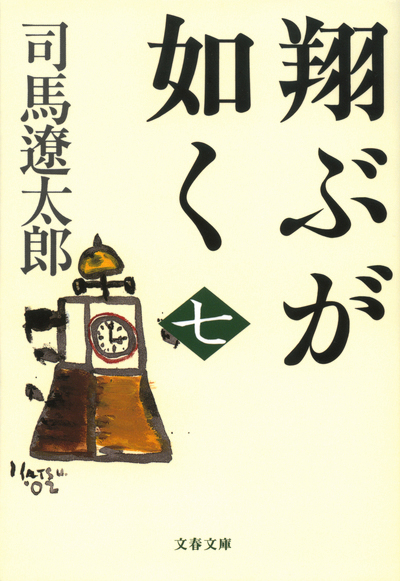 翔ぶが
如く
七
司馬遼太郎
'02
文春文庫